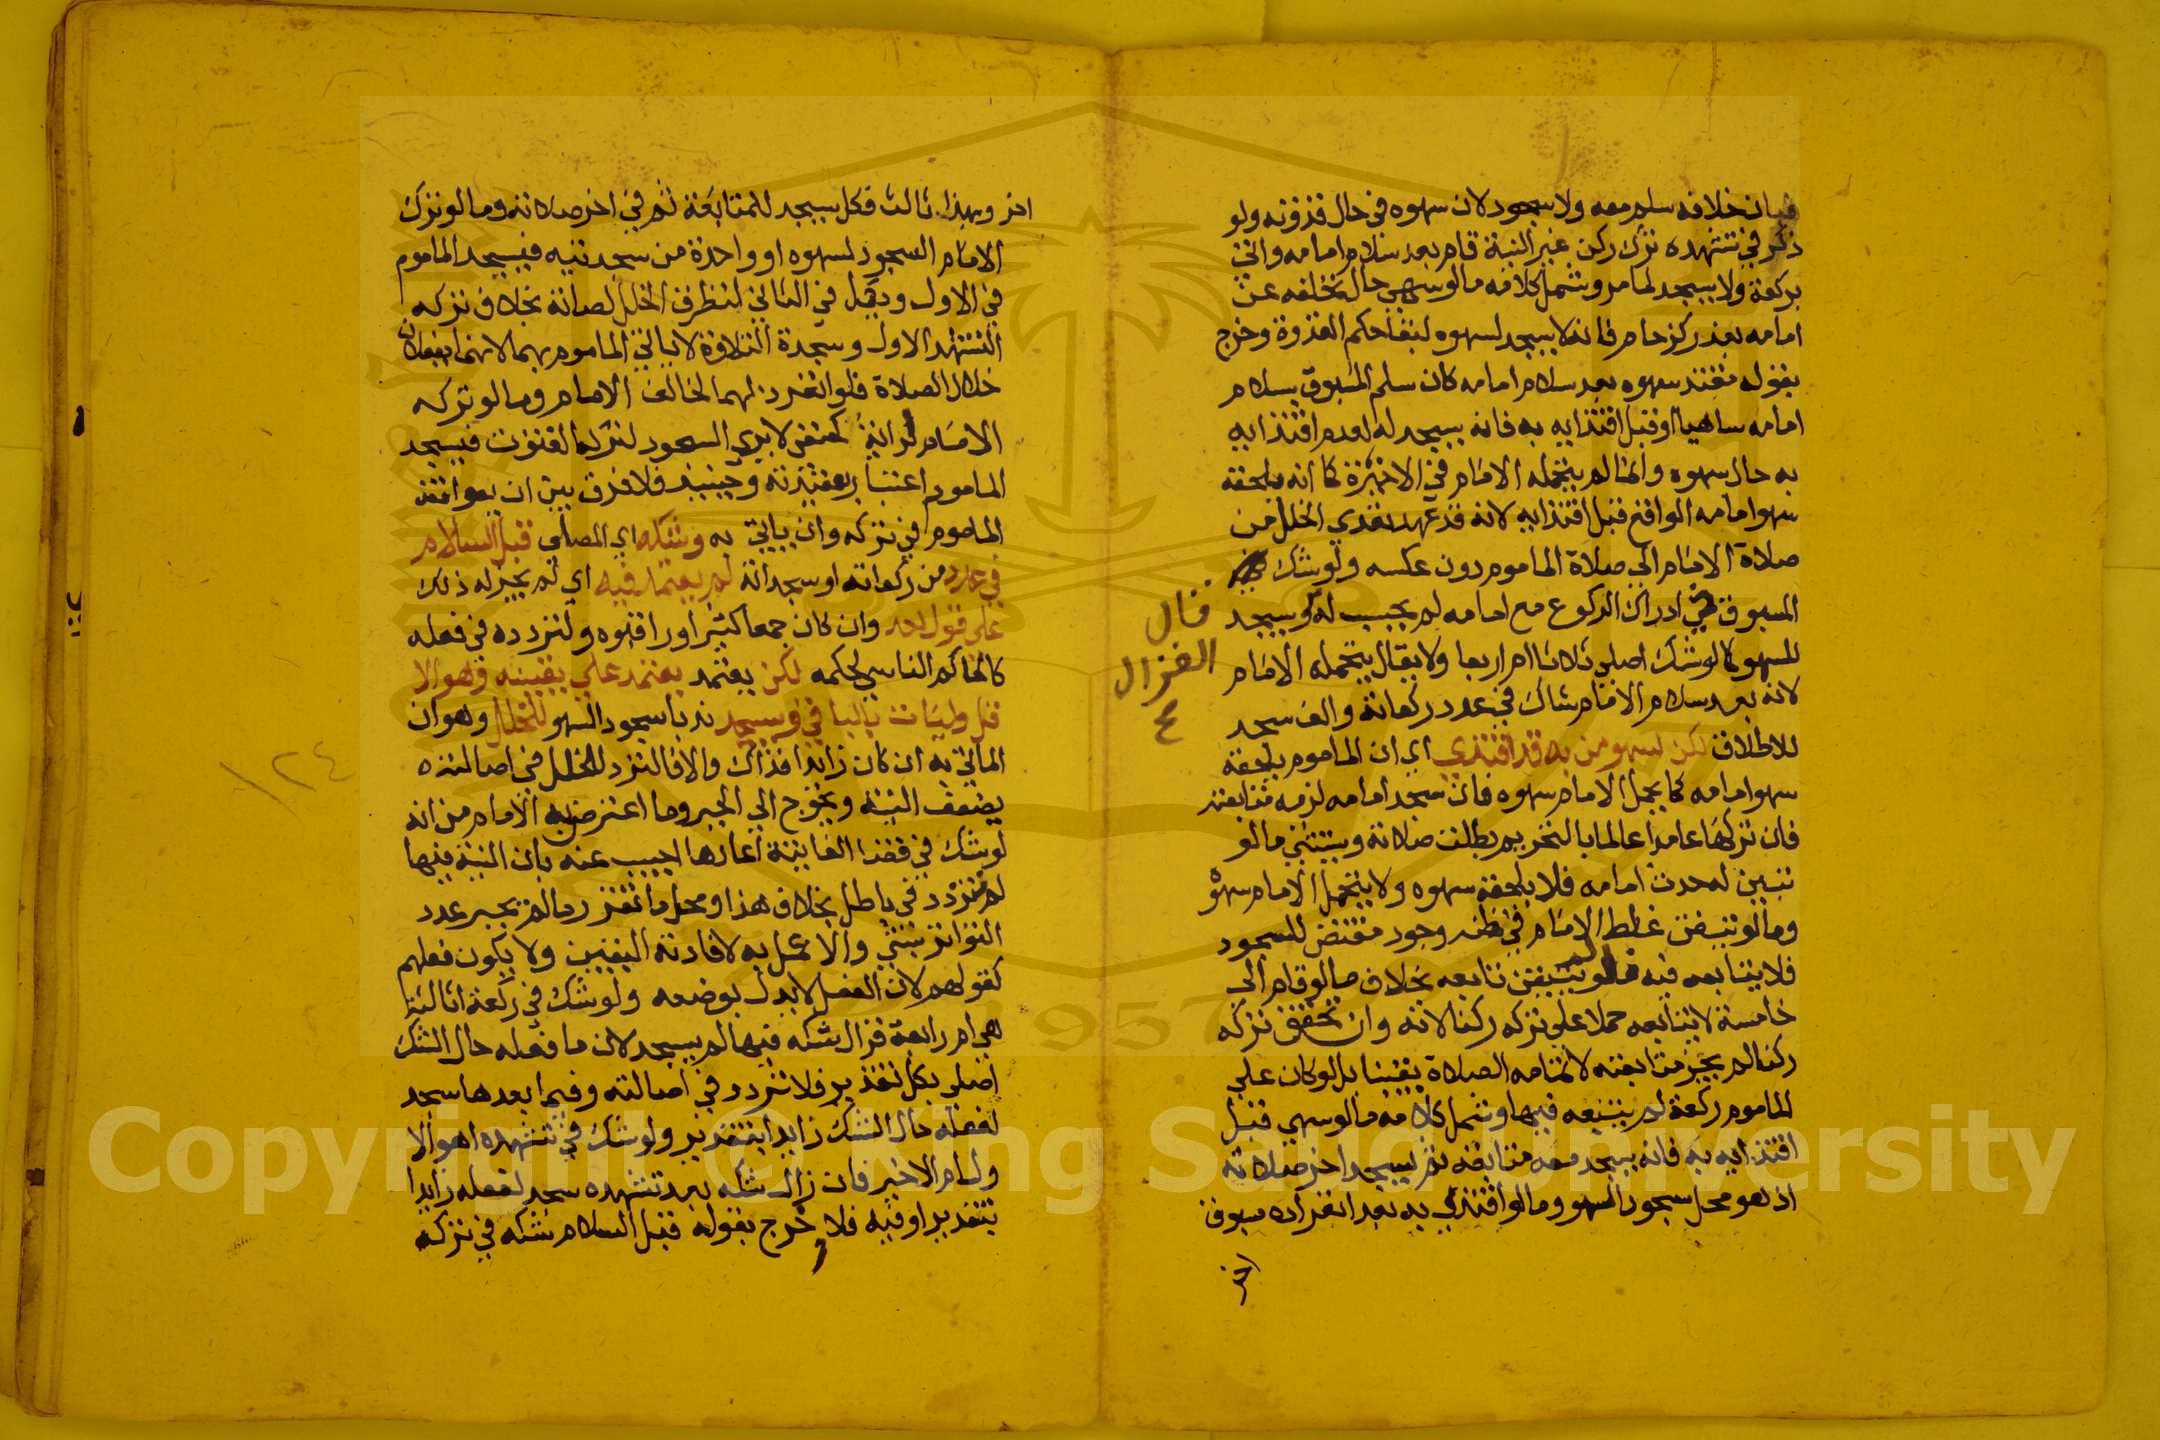 فبان خلافه سلم معه ولا سجود لان سهوه في حال قدوته ولو
ذكر في تشهده ترك ركن غير النية قام بعد سلام امامه واتى
بركعة ولا يسجد لما مر وشمل كلامه ما لو سهى حال تخلفه عن
امامه بعذر كزحام فانه لا يسجد لسهوه لبقا حكم القدوة وخرج
بقوله مقتد سهوه بعد سلام امامه كان سلم المسبوق بسلام
امامه ساهيا او قبل اقتدايه به فانه يسجد له لعدم اقتدايه
به حال سهوه وانما لم يتحمله الامام في الاخيرة كما انه يلحقه
سهو امامه الواقع قبل اقتدايه لانه قد عهد تعدي الخلل من
صلاة الامام الى صلاة الماموم دون عكسه ولو شك
المسبوق في ادراك الركوع مع امامه لم يحسب له ويسجد
للسهو كما لو شك اصلى ثلاثا ام اربعا ولا يقال يتحمله الامام
لانه بعد سلام الامام شاك في عدد ركعاته والف سجد
للاطلاق لكن لسهو من به قد اقتدي اي ان الماموم يلحقه
سهو امامه كما يحمل الامام سهوه فان سجد امامه لزمه متابعته
فان تركها عامدا عالما بالتحريم بطلت صلاته ويستثنى ما لو
تبين له حدث امامه فلا يلحقه سهوه ولا يتحمل الامام سهوه
وما لو تيقن غلط الامام في ظنه وجود مقتض للسجود
فلا يتابعه فيه فلو لم يتيقن تابعه بخلاف ما لو قام الى
خامسة لا يتابعه حملا على تركه ركنا لانه وان تحقق تركه
ركنا لم يجز متابعته لاتمامه الصلاة يقينا بل لو كان على
الماموم ركعة لم يتبعه فيها وشمل كلامه ما لو سهى قبل
اقتدايه به فانه يسجد معه متابعة ثم يسجد اخر صلاته
اذ هو محل سجود السهو وما لو اقتدي به بعد انفراده مسبوق
اخر
قال
الغزال
ع
اخر وبهذا ثالث فكل يسجد للمتابعة ثم في اخر صلاته وما لو ترك
الامام السجود لسهوه او واحدة من سجدتيه فيسجد الماموم
في الاول ويكمل في الثاني لتطرق الخلل لصلاته بخلاف تركه
التشهد الاول وسجدة التلاوة لا ياتي الماموم بهما لانهما يفعلان
خلال الصلاة فلو انفرد بهما لخالف الامام وما لو تركه
الامام لرايه كحنفي لا يري السجود لترك القنوت فيسجد
الماموم اعتبارا بعقيدته وحينيذ فلا فرق بين ان يوافقه
الماموم في تركه وان ياتي به وشكه اي المصلى قبل السلام
في عدد من ركعاته او سجداته لم يعتمد فيه اي لم يجز له ذلك
على قول احد وان كان جمعا كثيرا وراقبوه ولتردده في فعله
كالحاكم الناسي لحكمه لكن يعتمد يعتمد على يقينه وهو الا
قل وليات بالباقي ويسجد ندبا سجود السهو للخلل وهو ان
الماتي به ان كان زايدا فذاك والا فالتردد للخلل في اصالته
يضعف النية ويحوج الى الجبر وما اعترض به الامام من انه
لو شك في قضا الفايتة اعادها اجيب عنه بان النية فيها
لم تتردد في باطل بخلاف هذا ومحل ما تقرر ما لم يخبر عدد
التواتر بشي والا عمل به لافادته اليقين ولا يكون فعلهم
كقولهم لان الفعل لا يدل بوضعه ولو شك في ركعة اثالثة
هي ام رابعة فزال شكه فيها لم يسجد لان ما فعله حال الشك
اصلى بكل تقدير فلا تردد في اصالته وفيما بعدها سجد
لفعله حال الشك زايدا بتقدير ولو شك في تشهده اهو الا
ول ام الاخير فان زال شكه بعد تشهده سجد لفعله زايدا
بتقدير او فيه فلا وخرج بقوله قبل السلام شكه في تركه
١٢٤
1957
Copyright © King Saud University